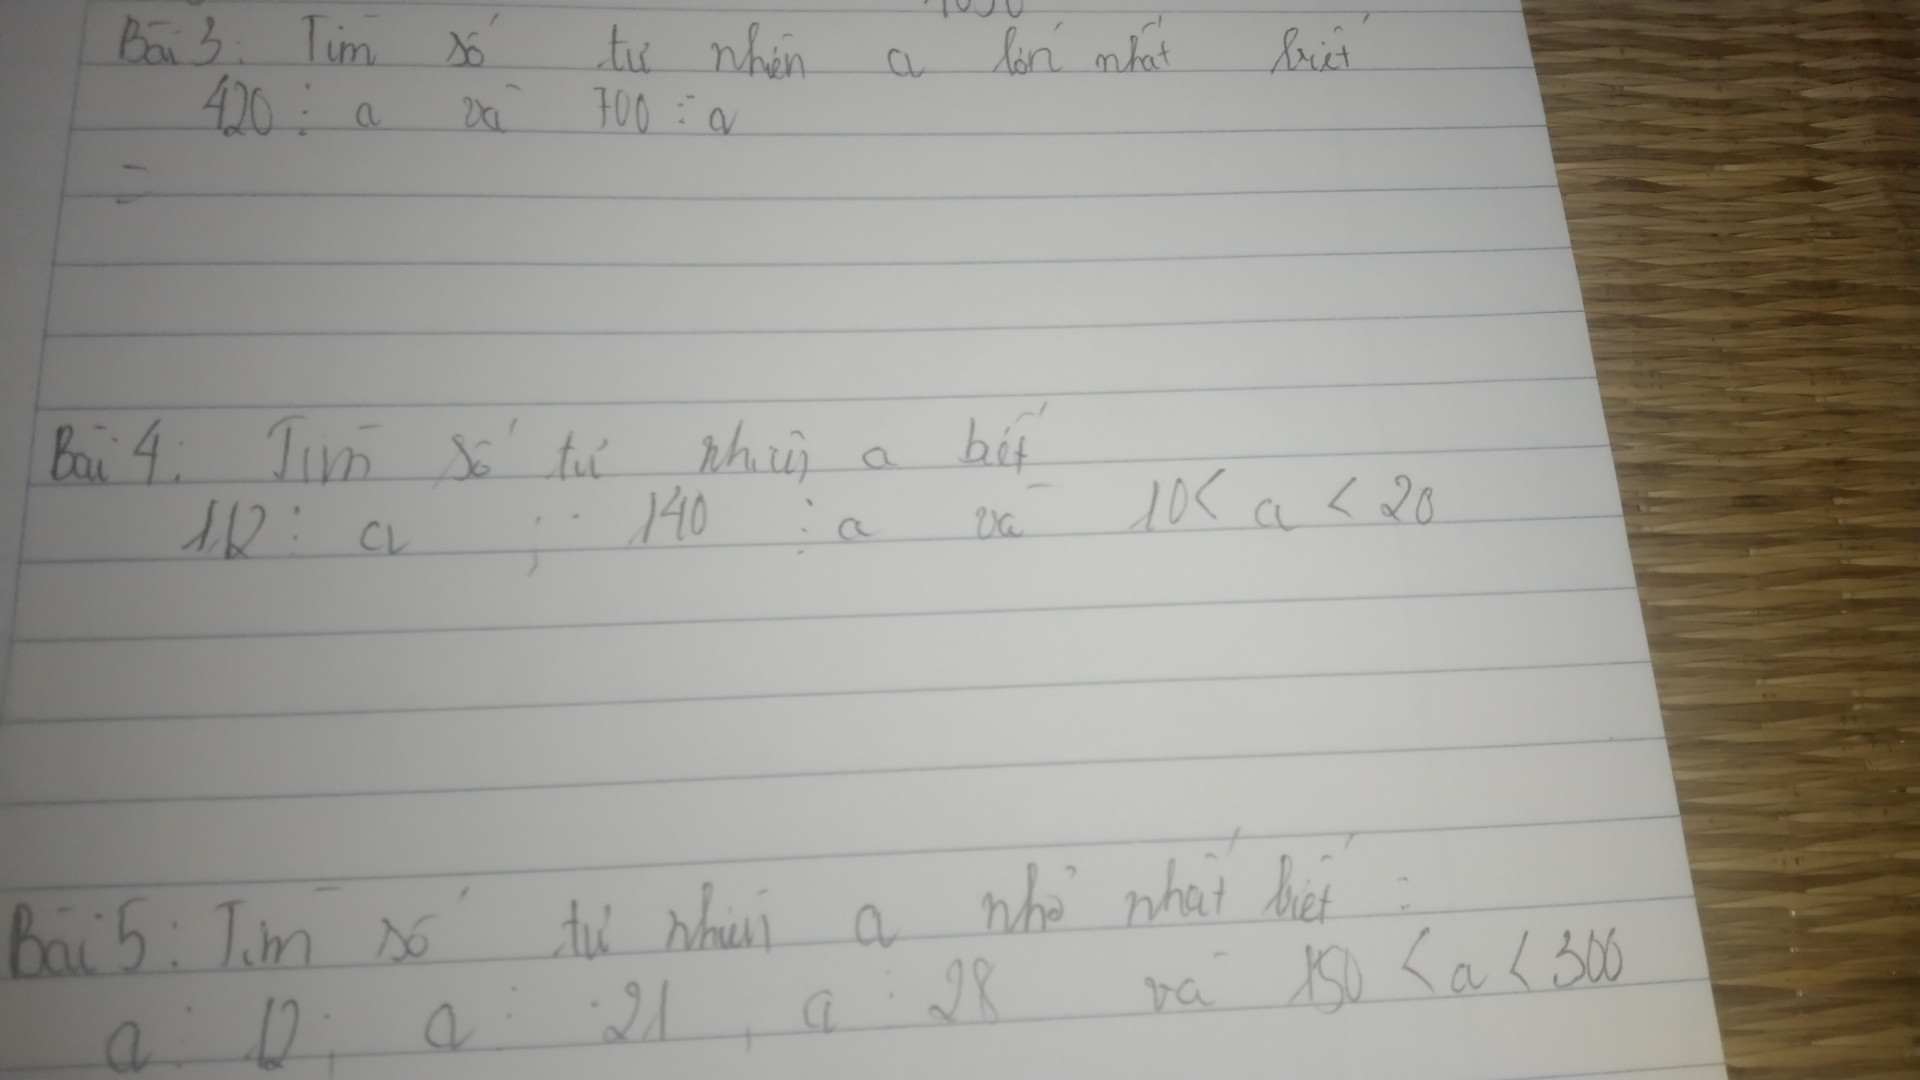 Bài 3: Tìm số tự nhiên a lớn nhất biết
420 ⋮ a và 700 ⋮ a
=
Bài 4: Tìm số tự nhiên a biết
112 ⋮ a ; 140 ⋮ a và 10 < a < 20
Bài 5: Tìm số tự nhiên a nhỏ nhất biết :
a ⋮ 12; a ⋮ 21, a ⋮ 28 và 150 < a < 300